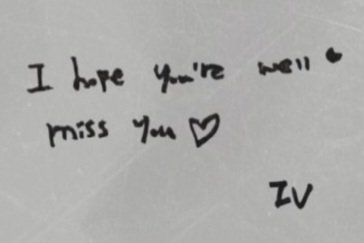 I hope you're well
miss you ♡
IV